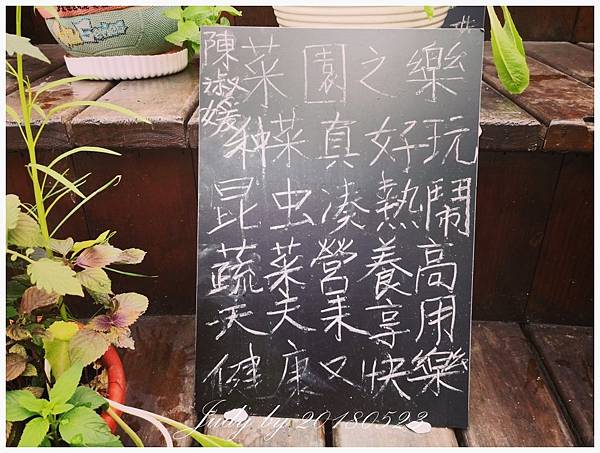 陳淑媛
菜園之樂
种菜真好玩
昆虫凑熱鬧
蔬菜營養高
天天来享用
健康又快樂
Judy by 20180523